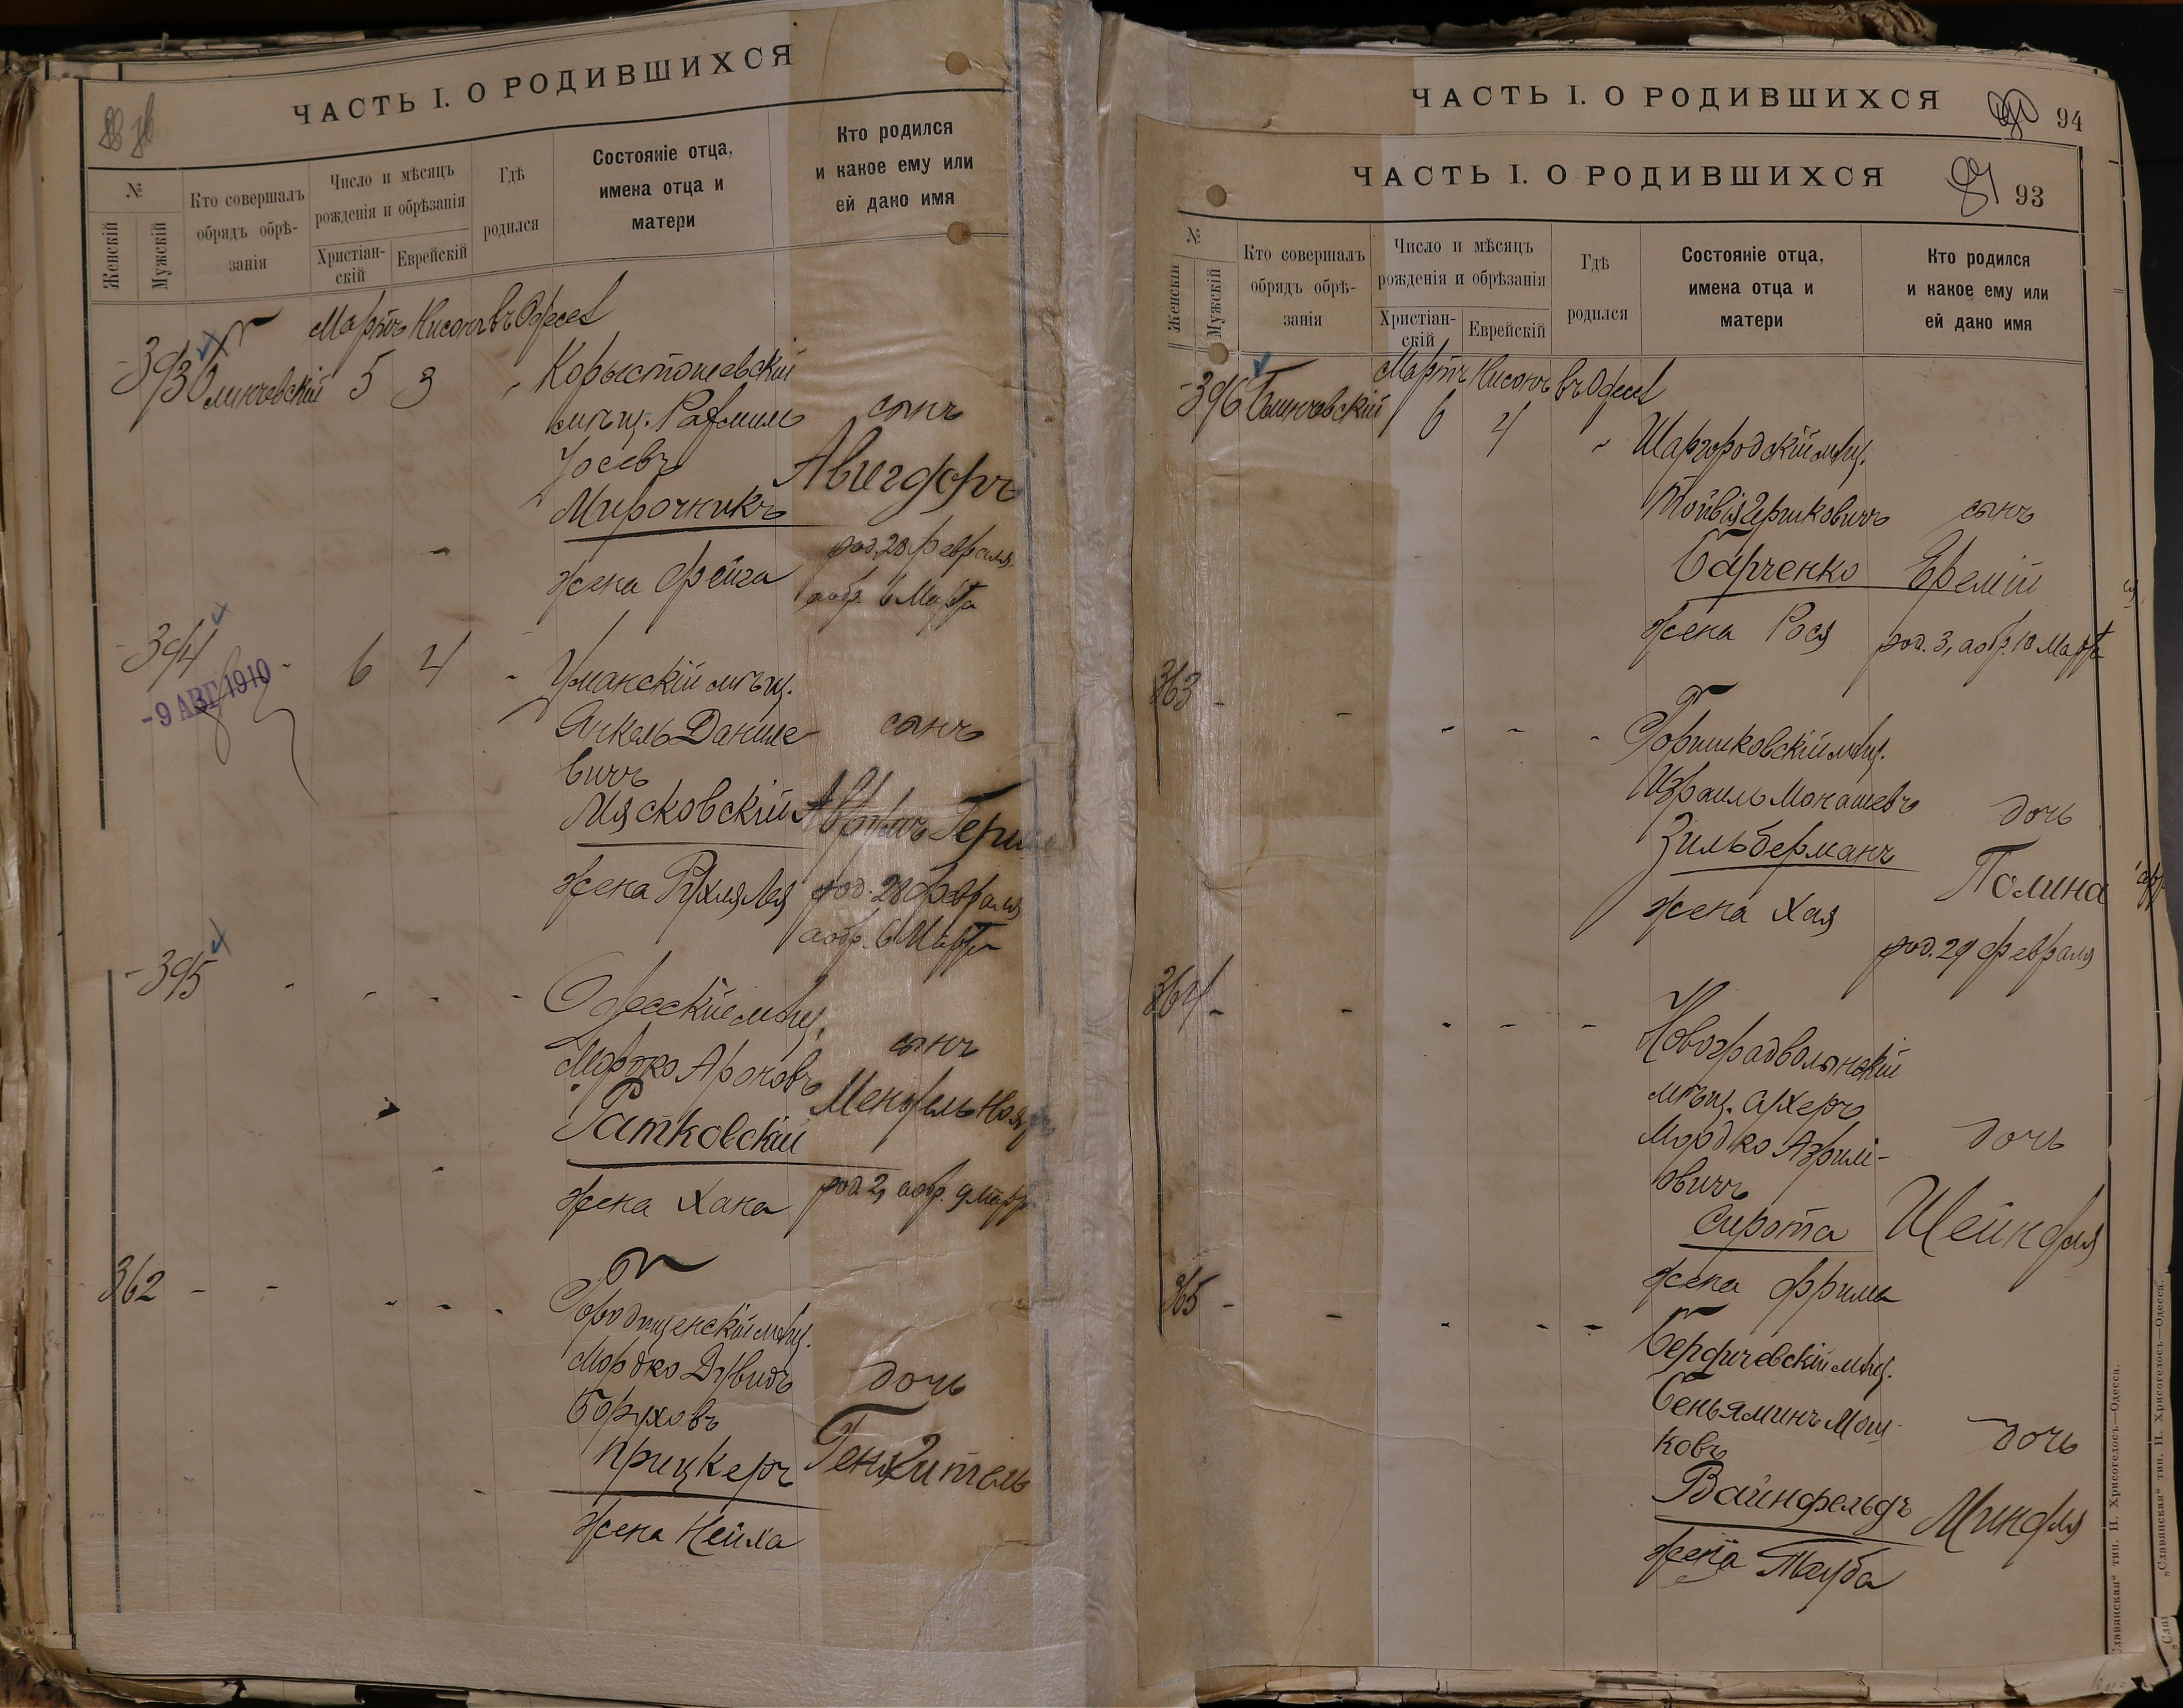 88 об
ЧАСТЬ I. О РОДИВШИХСЯ
№
Женскій
Мужскій
Кто совершалъ
обрядъ обрѣ-
занія
Число и мѣсяцъ
рожденія и обрѣзанія
Христіан-
скій
Еврейскій
Гдѣ
родился
Состояніе отца,
имена отца и
матери
Кто родился
и какое ему или
ей дано имя
Мартъ Нисонъ въ Одессѣ
393 5 3 Корыстошевскій
мѣщ.
Іосевъ
Мирочникъ
жена Фейга
сынъ
Авигдоръ
род. 28 февраля
а обр. 6 Марта
394 6 4 Уманскій мѣщ.
-9 АВГ 1910
Янкель Даниле
вичъ
Мясковскій
жена Рухля Лея
сынъ
Аврумъ Герш
род. 28 февраля
а обр. 6 Марта
395 - - - - Одесскій мѣщ.
Мордко Ароновъ
Ратковскій
жена Хана
сынъ
Мендель
род. 2, а обр. 9 Март
362 - - - - - Городищенскій мѣщ.
Мордко Дувидъ
Боруховъ
Прицкеръ
жена Нейха
дочь
ЧАСТЬ I. О РОДИВШИХСЯ 94
ЧАСТЬ I. О РОДИВШИХСЯ 93
№
Женскій
Мужскій
Кто совершалъ
обрядъ обрѣ-
занія
Число и мѣсяцъ
рожденія и обрѣзанія
Христіан-
скій
Еврейскій
Гдѣ
родился
Состояніе отца,
имена отца и
матери
Кто родился
и какое ему или
ей дано имя
Мартъ Нисонъ въ Одессѣ
396 6 4 Шаргородскій мѣщ.
Тойвія Ершковичъ
Барченко
жена Рося
сынъ
Еремій
род. 3, а обр. 10 Марта
363 - - - - - Горшковскій мѣщ.
Израиль Монашевъ
Зильберманъ
жена Хая
дочь
Полина
род. 29 февраля
364 - - - - - Новоградволынскій
мѣщ.
Мордко Азрилі-
овичъ
Сирота
жена Фрима
дочь
Шейндля
365 - - - - - Бердичевскій мѣщ.
Беньяминъ Мош-
ковъ
Вайнфельдъ
жена Тауба
дочь
Миндля
„Славянская“ тип. Н. Хрисогелосъ—Одесса.
„Славянская“ тип. Н. Хрисогелосъ—Одесса.